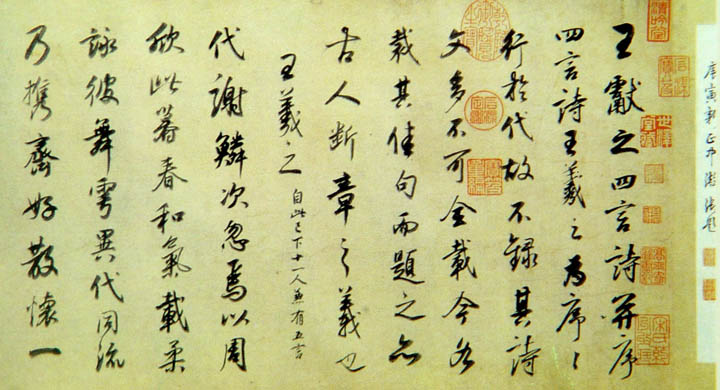 庚寅新正
題
王獻之四言詩并序
四言詩王羲之為序〻
行於代故不録其詩
文多不可全載今各
裁其佳句而題之亦
古人斷章之義也
王羲之 自此已下十一人並有五言
代謝鱗次忽焉以周
欣此暮春和氣載柔
詠彼舞雩異代同流
乃攜齊好散懷一